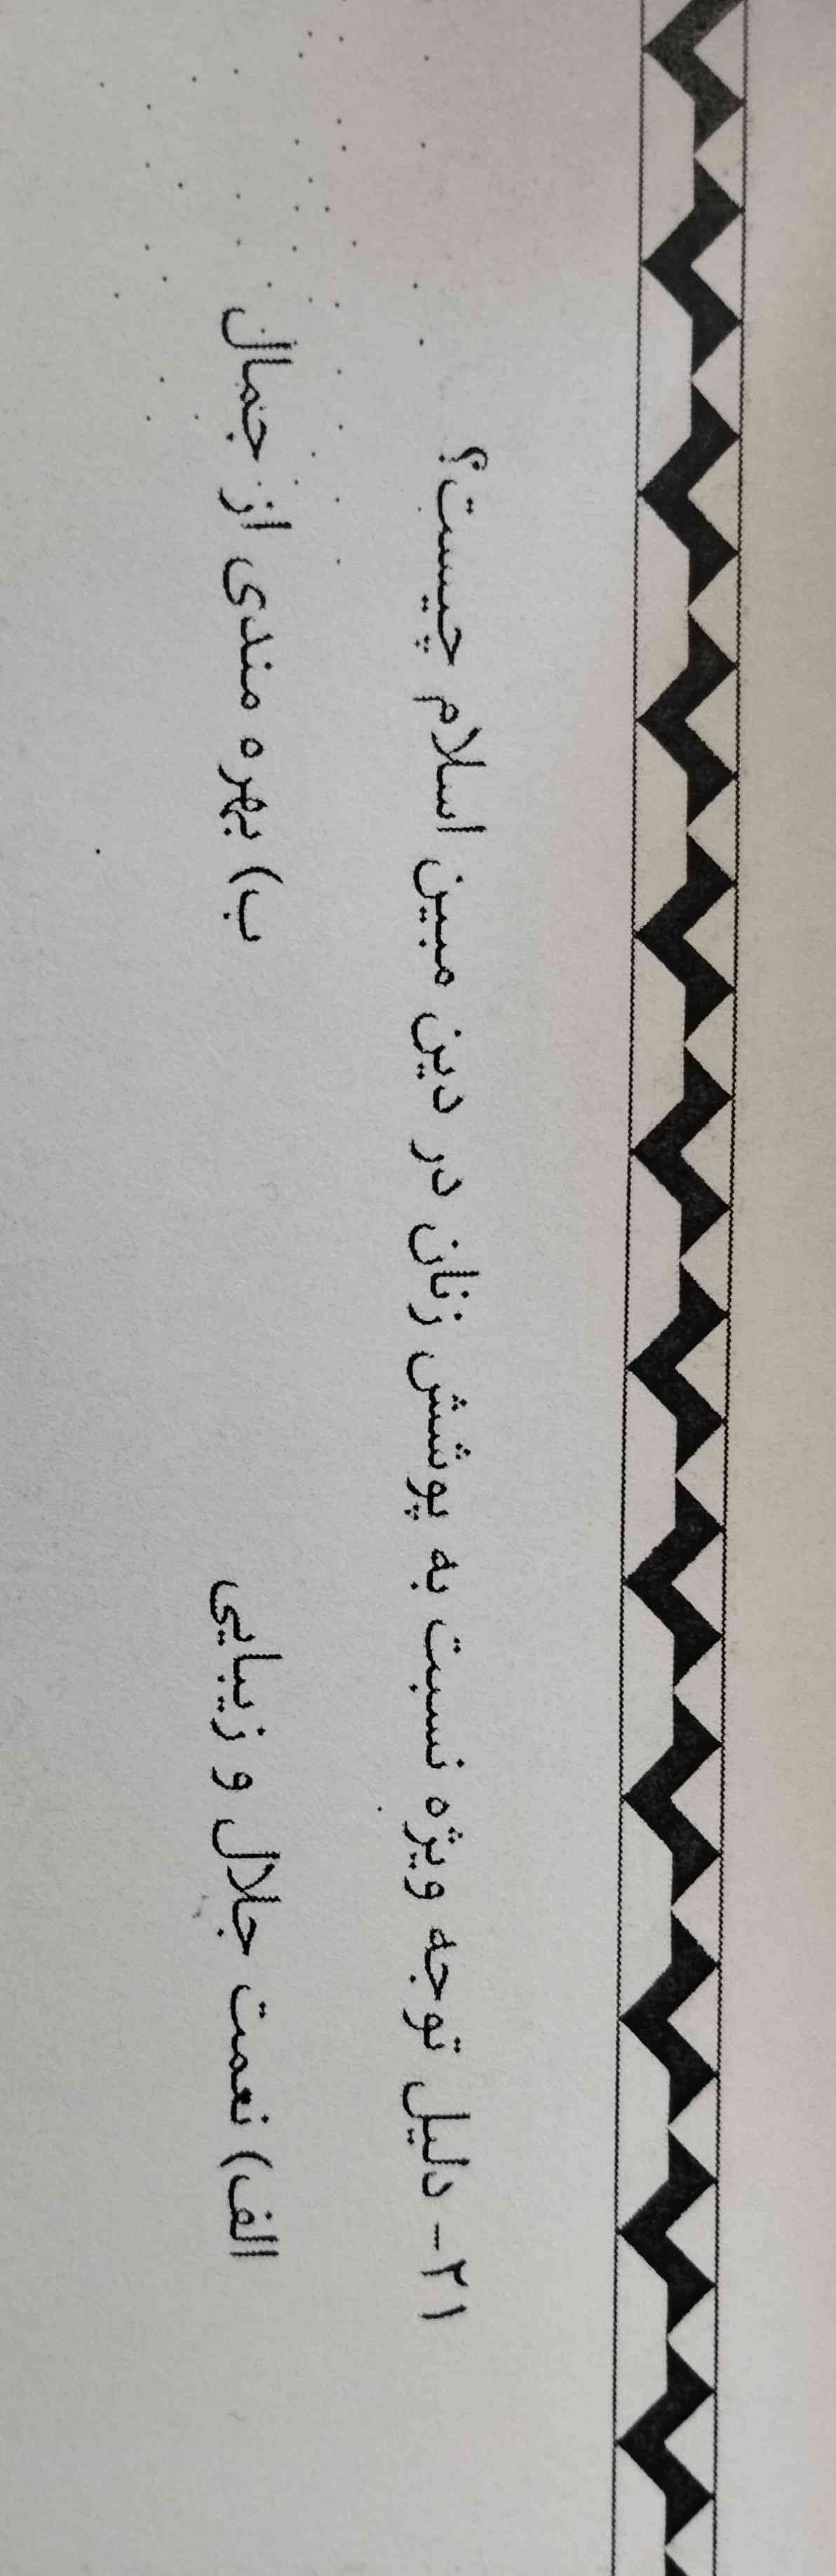 ۲۱- دلیل توجه ویژه نسبت به پوشش زنان در دین مبین اسلام چیست؟
الف) نعمت جلال و زیبایی ب) بهره مندی از جمال